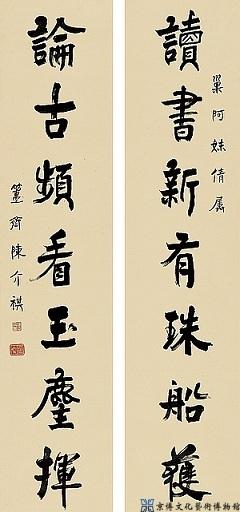 讀書新有珠船獲
巢阿妹倩屬
論古頻看玉麈揮
簠齋陳介祺
京博文化藝術博物館